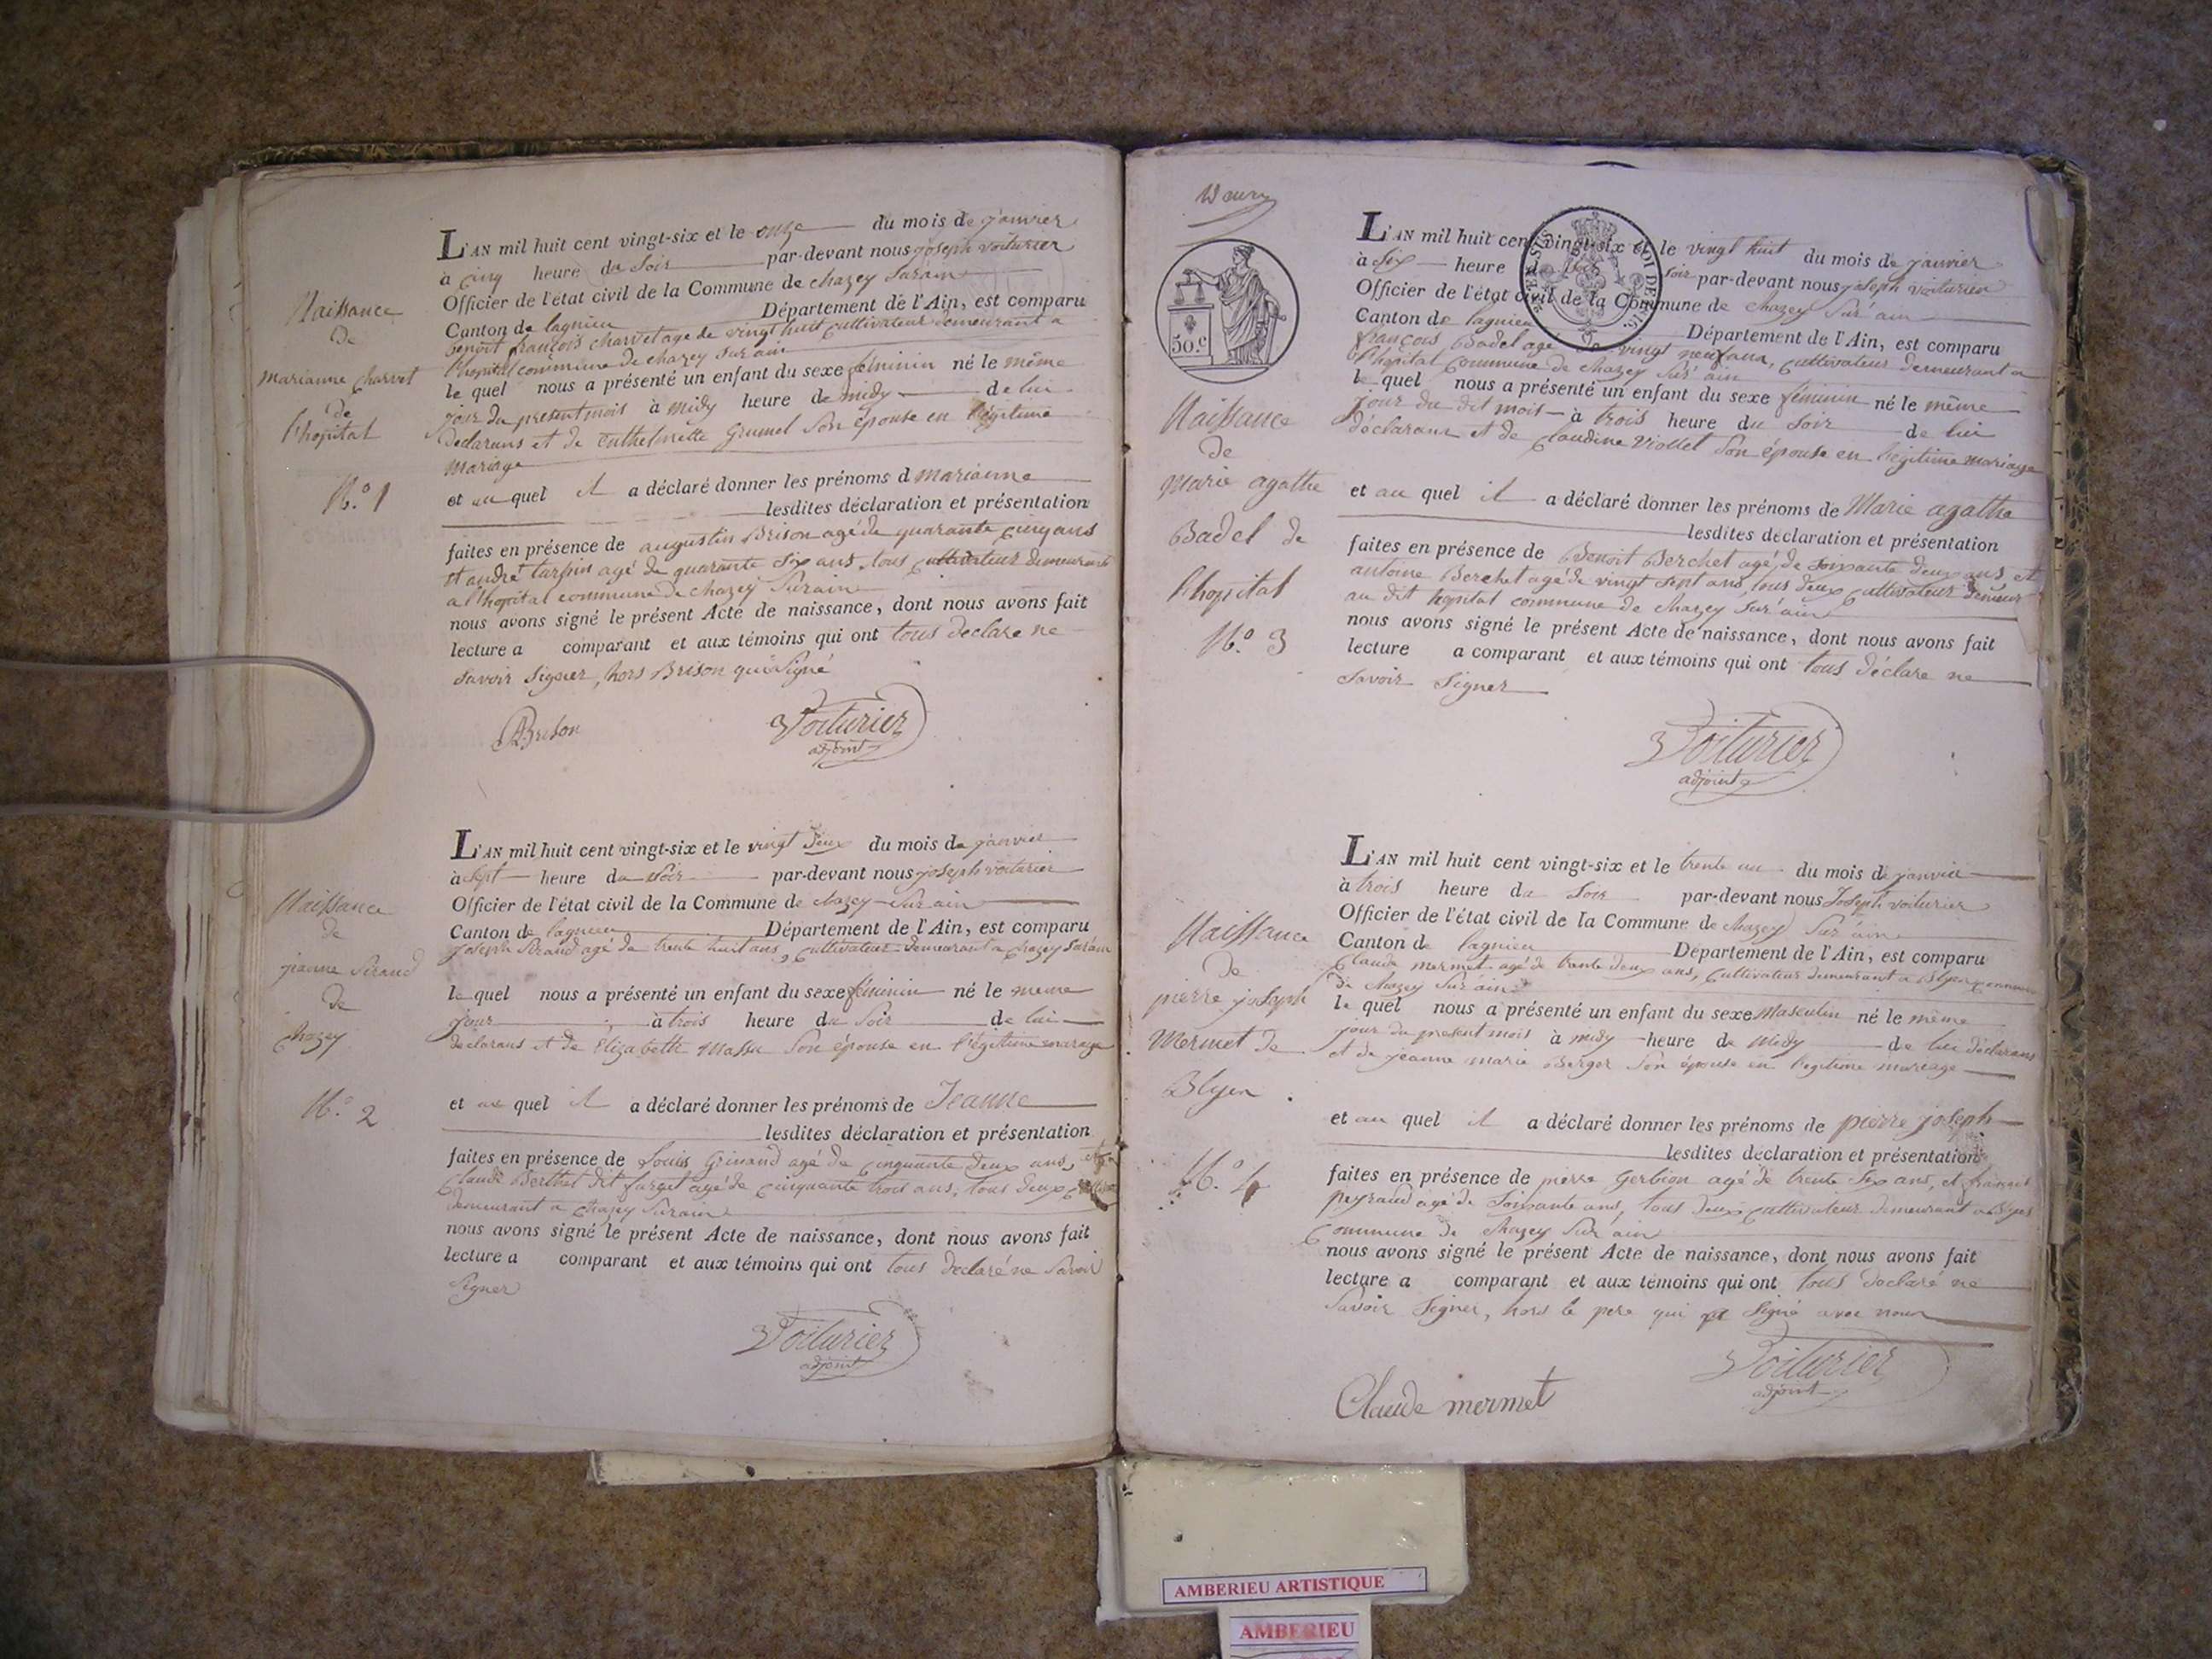 Naissance
de
marianne Charvet
de
l'hopital
N.º 1
L'AN mil huit cent vingt-six et le onze du mois de janvier
à cinq heure du Soir par-devant nous joseph voiturier
Officier de l'état civil de la Commune de chazey Surain
Canton de lagnieu Département de l'Ain, est comparu
benoit françois charvet age de vingt huit cultivateur demeurant a
l'hopital commune de chazey Sur ain
le quel nous a présenté un enfant du sexe féminin né le même
jour du present mois à midy heure de midy de lui
declarans et de Enthelmette Grumel Son épouse en légitime
mariage
et au quel il a déclaré donner les prénoms d marianne
lesdites déclaration et présentation
faites en présence de augustin Brison agé de quarante cinq ans
et andré turpin agé de quarante Six ans, tous cultivateur demeurant
a l'hopital commune de chazey Surain
nous avons signé le présent Acte de naissance, dont nous avons fait
lecture a comparant et aux témoins qui ont tous declare ne
Savoir Signer, hors Brison qui a Signé
Brison
Voiturier
adjoint
Naissance
de
jeanne Siraud
de
Chazey
N.º 2
L'AN mil huit cent vingt-six et le vingt deux du mois de janvier
à Sept heure du Soir par-devant nous joseph voiturier
Officier de l'état civil de la Commune de chazey Sur ain
Canton de lagnieu Département de l'Ain, est comparu
joseph Siraud agé de trente huit ans, cultivateur demeurant a chazey Surain
le quel nous a présenté un enfant du sexe féminin né le meme
jour à trois heure du Soir de lui
declarans et de Elizabeth Massu Son épouse en légitime mariage
et au quel il a déclaré donner les prénoms de Jeanne
lesdites déclaration et présentation
faites en présence de Louis Grinand agé de cinquante deux ans, et
Claude Berthet dit farget agé de cinquante trois ans, tous deux
demeurant a chazey Surain
nous avons signé le présent Acte de naissance, dont nous avons fait
lecture a comparant et aux témoins qui ont tous declaré ne Savoir
Signer
Voiturier
adjoint
50.C
Naissance
de
Marie agathe
Badel de
l'hopital
N.º 3
L'AN mil huit cent vingt-six et le vingt huit du mois de janvier
à Six heure du Soir par-devant nous joseph voiturier
Officier de l'état civil de la Commune de Chazey Sur ain
Canton de lagnieu Département de l'Ain, est comparu
françois Badel agé de vingt neuf ans, cultivateur demeurant a
l'hopital Commune de Chazey Sur ain
le quel nous a présenté un enfant du sexe féminin né le même
jour du dit mois à trois heure du Soir de lui
déclarans et de Claudine Viollet Son épouse en légitime mariage
et au quel il a déclaré donner les prénoms de Marie agathe
lesdites déclaration et présentation
faites en présence de Benoit Berchet agé de soixante deux ans, et
antoine Berchet agé de vingt Sept ans, tous deux cultivateur demeur
au dit hopital commune de Chazey Sur ain
nous avons signé le présent Acte de naissance, dont nous avons fait
lecture a comparant et aux témoins qui ont tous déclare ne
Savoir Signer
Voiturier
adjoint
Naissance
de
pierre joseph
Mermet de
Blyen
N.º 4
L'AN mil huit cent vingt-six et le trente un du mois de janvier
à trois heure du Soir par-devant nous Joseph voiturier
Officier de l'état civil de la Commune de Chazey Sur ain
Canton de lagnieu Département de l'Ain, est comparu
Claude mermet agé de trente deux ans, cultivateur demeurant a Blyen commune
de Chazey Sur ain
le quel nous a présenté un enfant du sexe Masculin né le même
jour du present mois à midy heure de Midy de lui déclarans
et de jeanne marie Berger Son épouse en légitime mariage
et au quel il a déclaré donner les prénoms de pierre joseph
lesdites déclaration et présentation
faites en présence de pierre Gerbion agé de trente Six ans, et françois
peyraud agé de Soixante ans, tous deux cultivateur demeurant a Blyes
Commune de Chazey Sur ain
nous avons signé le présent Acte de naissance, dont nous avons fait
lecture a comparant et aux témoins qui ont tous declaré ne
Savoir Signer, hors le pere qui a Signé avec nous
Claude mermet
Voiturier
adjoint
AMBERIEU ARTISTIQUE
AMBERIEU